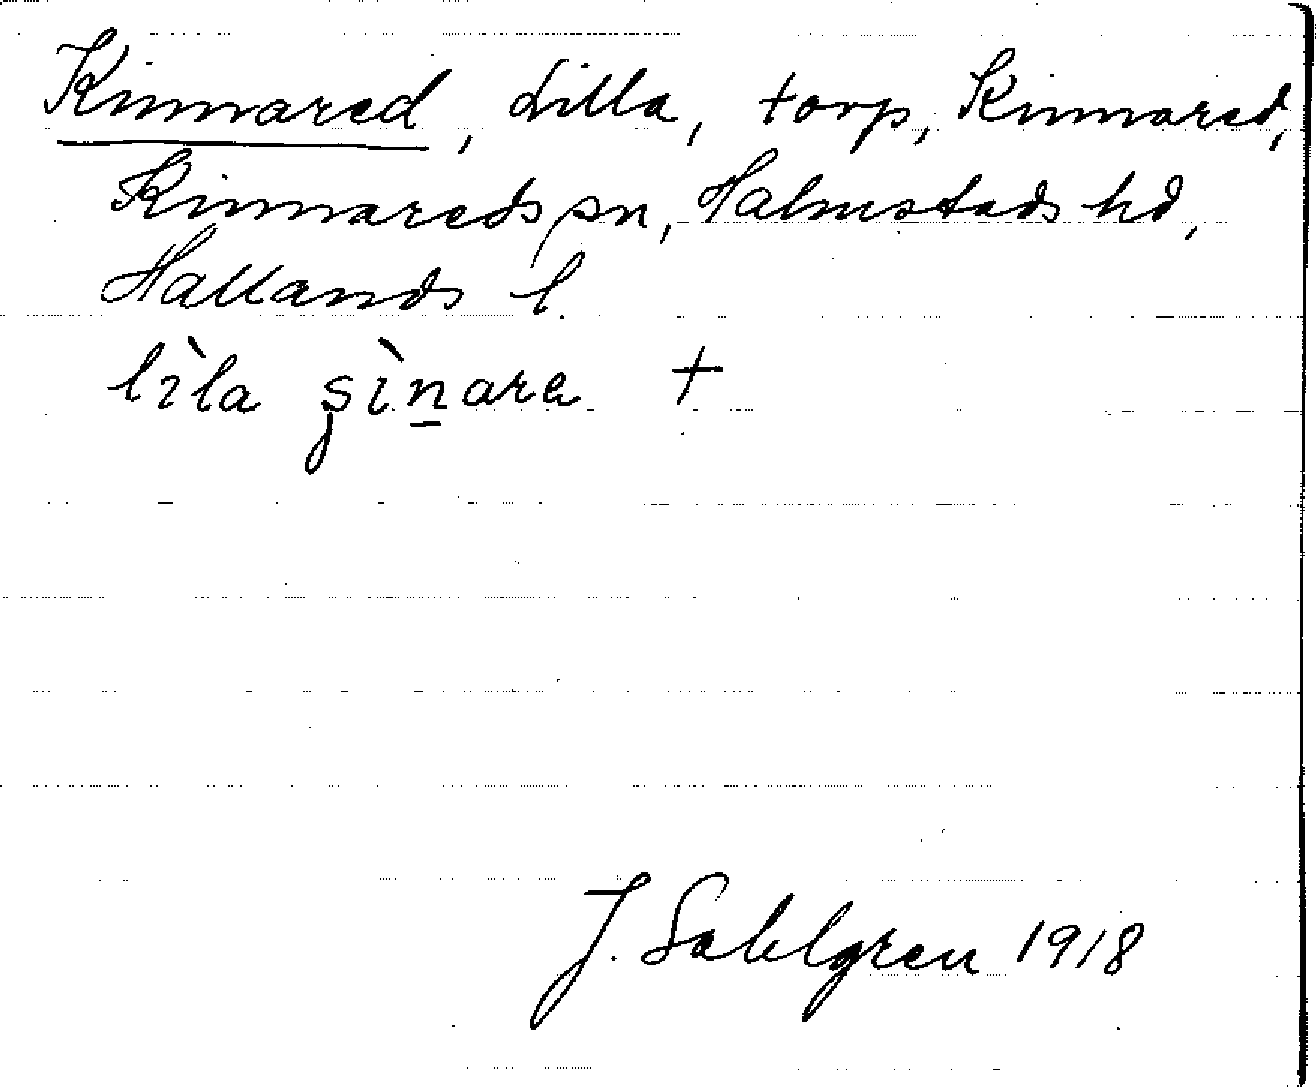 Kinnared, Lilla, torp, Kinnared,
Kinnareds sn, Halmstads hd,
Hallands l.
lìla şìn̲ara +
J. Sahlgren 1918